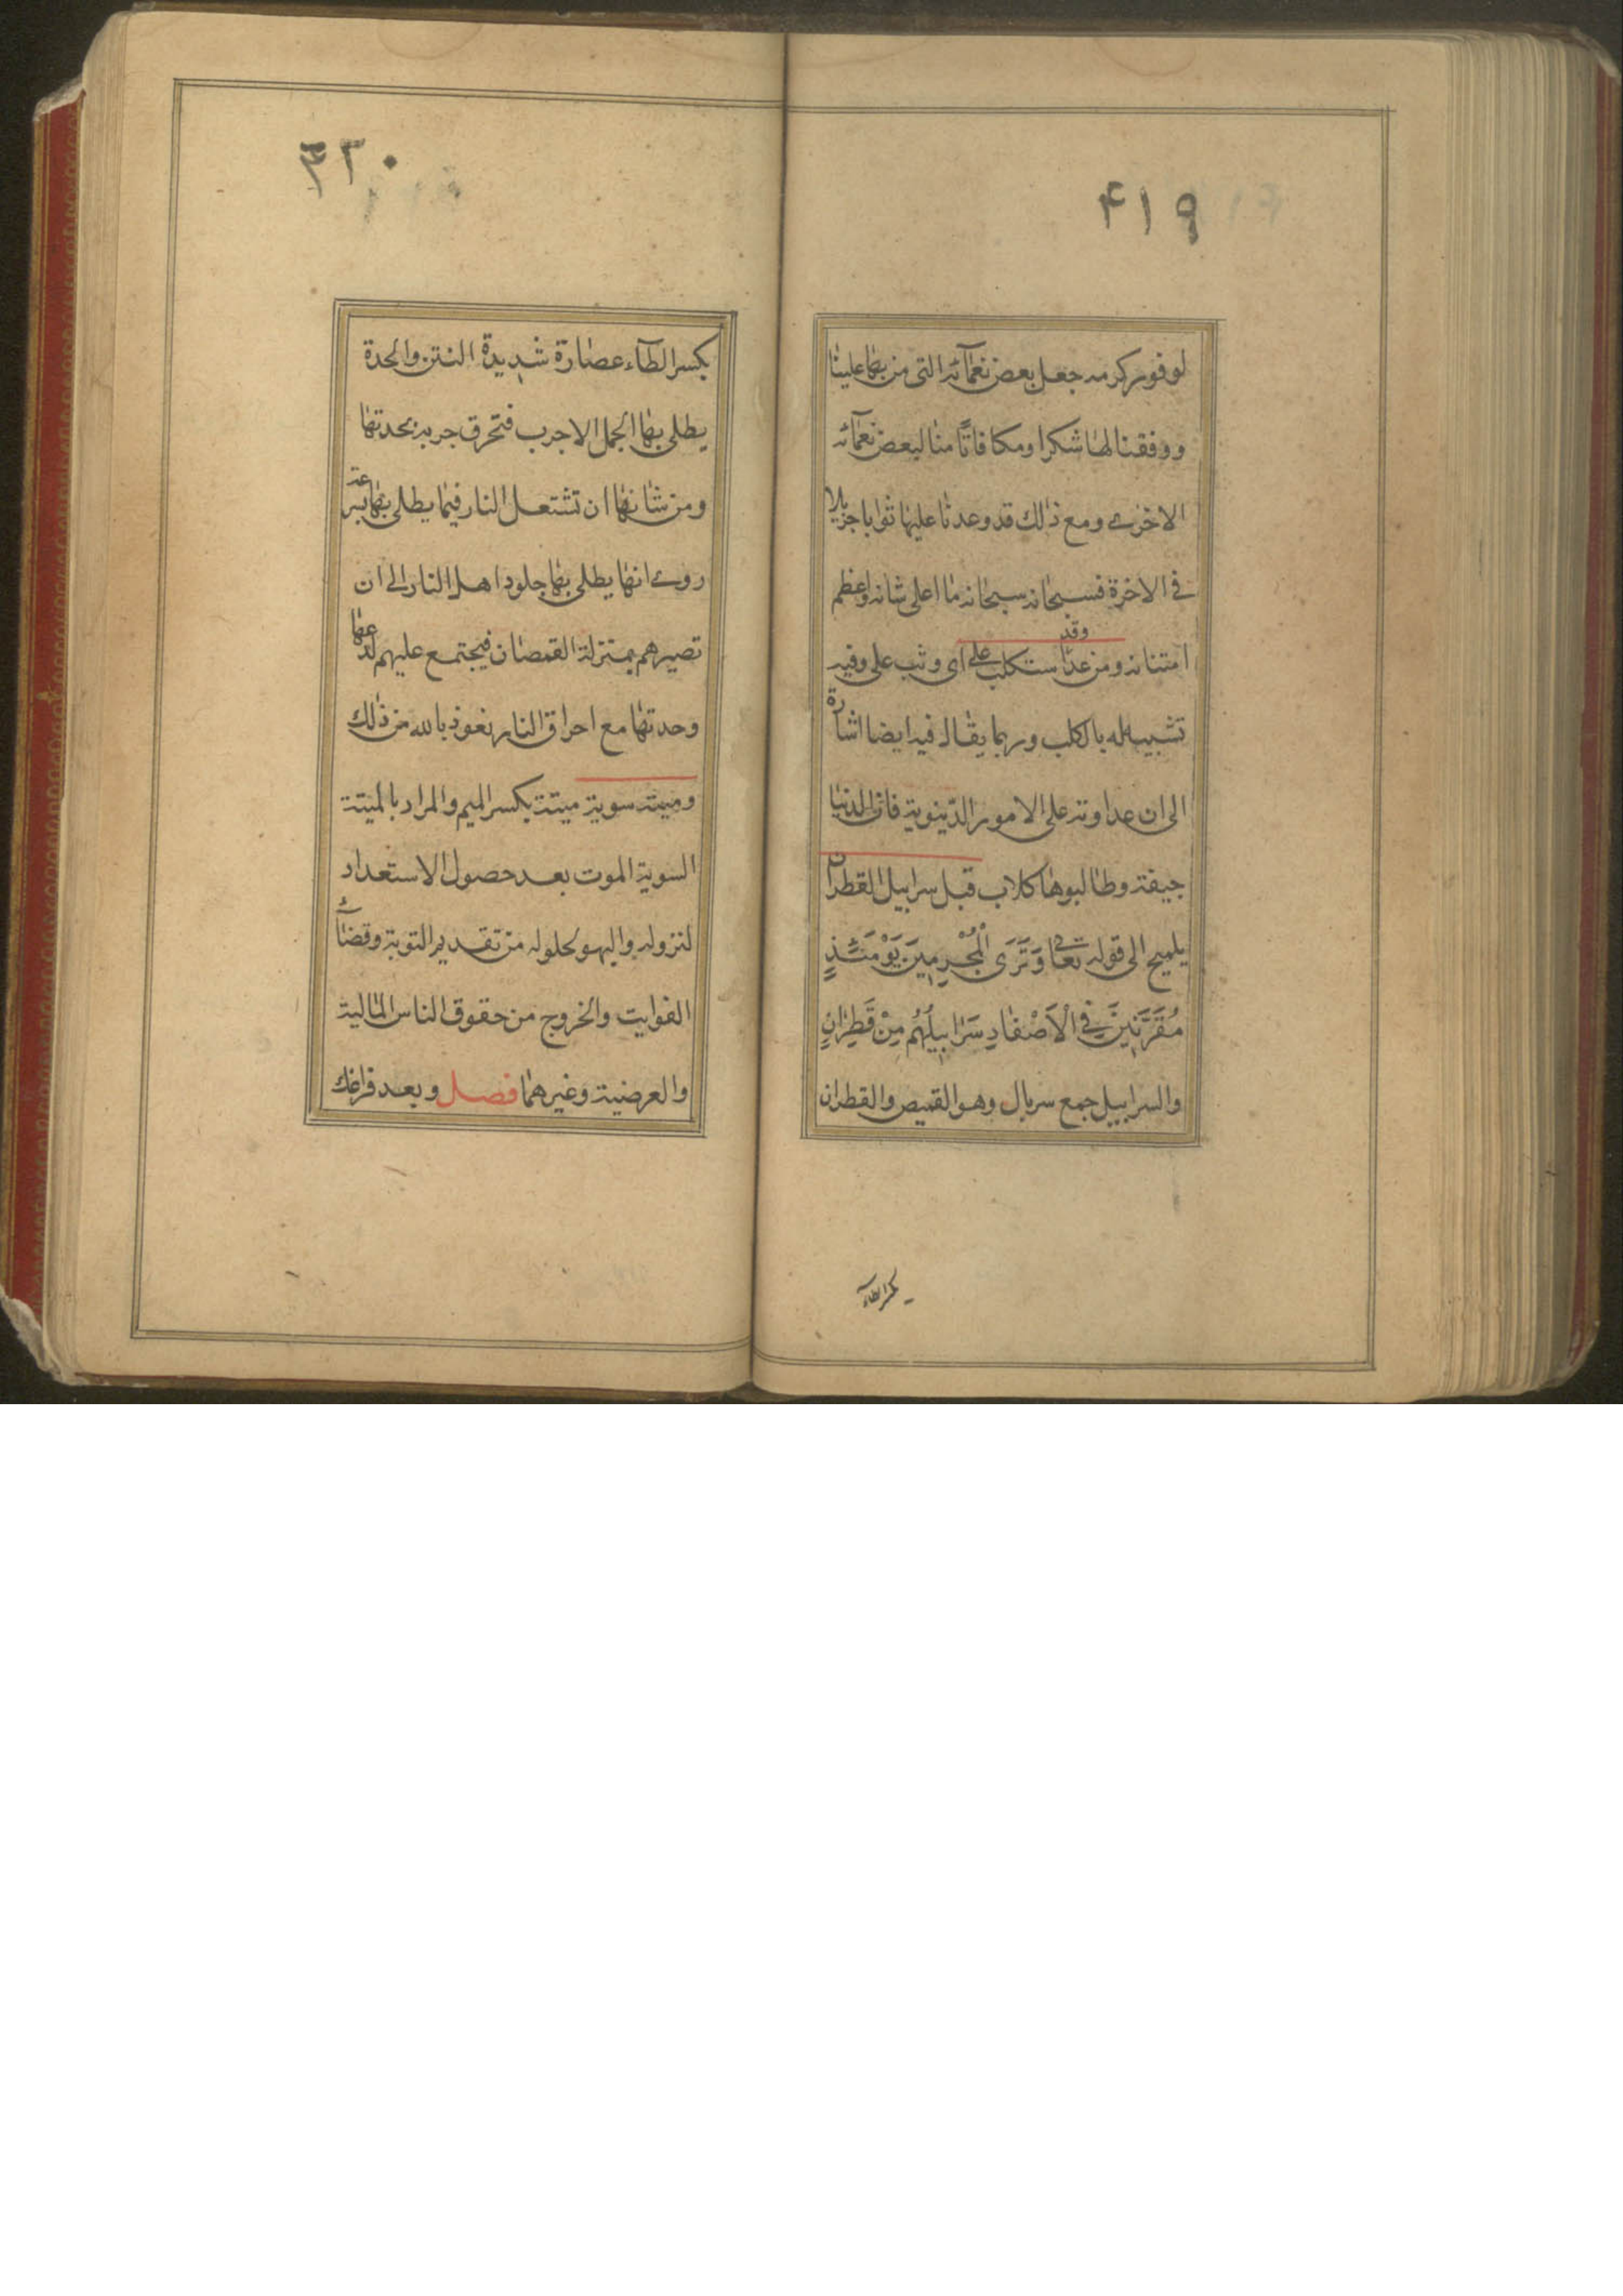 ۴۱۹
لوفور كرمه جعل بعض نعمآئه التى من بها علينا
ووفقنا لها شكرا ومكافاتًا منا لبعض نعمآئه
الاخرى ومع ذلك قد وعدنا عليها ثوابا جزيلا
فى الاخرة فسبحانه سبحانه ما اعلى شانه واعظم
امتنانه ومن عدا وقد استكلب على اى وثب على وفيه
تشبيه له بالكلب وربما يقال فيه ايضا اشارة
الى ان عداوته على الامور الدنيوية فان الدنيا
جيفة وطالبوها كلاب قبل سرابيل القطران
يلميح الى قوله تعالى وَتَرَى الْمُجْرِمِينَ يَوْمَئِذٍ
مُقَرَّنِينَ فِى الْاَصْفَادِ سَرَابِيلُهُمْ مِنْ قَطِرَانٍ
والسرابيل جمع سربال وهو القميص والقطران
بكسر الطآء
۴۲۰
بكسر الطآء عصارة شديدة النتن والحدة
يطلى بها الجمل الاجرب فتحرق جربه بحدتها
ومن شانها ان تشتعل النار فيما يطلى بها بسرعة
روى انها يطلى بها جلود اهل النار الى ان
تصيرهم بمنزلة القمصان فيجتمع عليهم لذعها
وحدتها مع احراق النار نعوذ بالله من ذلك
وميتة سوية ميتة بكسر الميم والمراد بالميتة
السوية الموت بعد حصول الاستعداد
لنزوله والهبو لحلوله من تقديم التوبة وقضآء
الفوايت والخروج من حقوق الناس المالية
والعرضية وغيرهما فصل وبعد فراغك